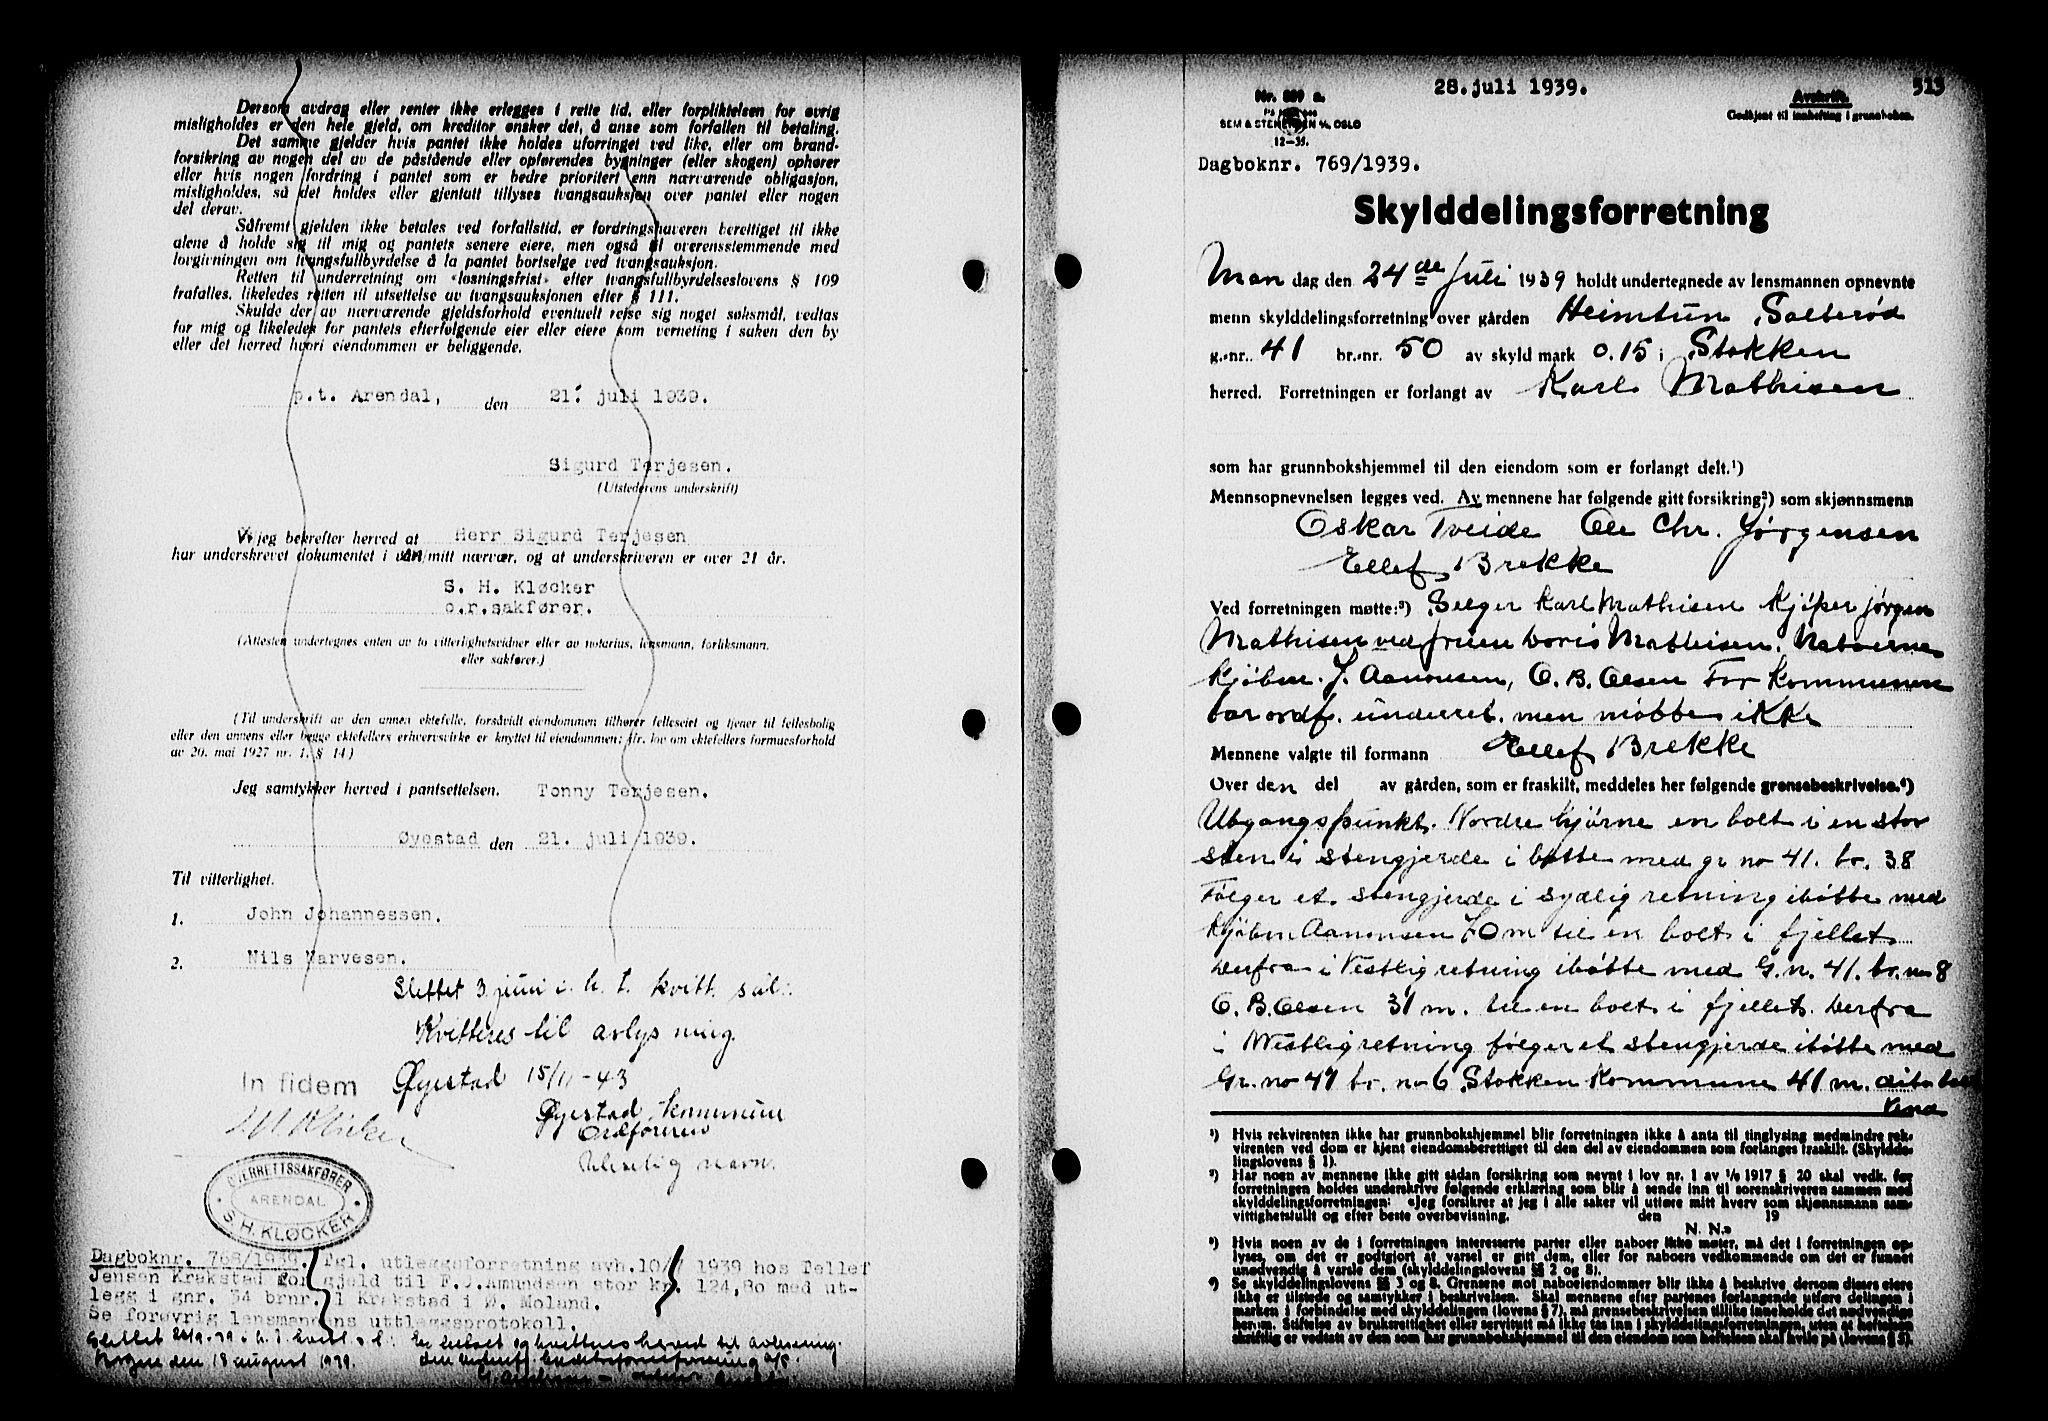 Dersom avdrag eller renter ikke erlegges i rette tid, eller forpliktelsen for øvrig
misligholdes er den hele gjeld, om kreditor ønsker det, å anse som forfallen til betaling.
Det samme gjelder hvis pantet ikke holdes uforringet ved like, eller om brand-
forsikring av nogen del av de påstående eller opførendes bygninger (eller skogen) ophører
eller hvis nogen fordring i pantet som er bedre prioritert enn nærværende obligasjon,
misligholdes, så det holdes eller gjentatt tillyses tvangsauksjon over pantet eller nogen
del derav.
Såfremt gjelden ikke betales ved forfallstid, er fordringshaveren berettiget til ikke
alene å holde sig til mig og pantets senere eiere, men også til overensstemmende med
lovgivningen om tvangsfullbyrdelse å la pantet bortselge ved tvangsauksjon.
Retten til underretning om «løsningsfrist» efter tvangsfullbyrdelseslovens § 109
frafalles, likeledes retten til utsettelse av tvangsauksjonen efter § 111.
Skulde der av nærværende gjeldsforhold eventuelt reise sig noget søksmål, vedtas
for mig og likeledes for pantets efterfølgende eier eller eiere som verneting i saken den by
eller det herred hvori eiendommen er beliggende.
p.t. Arendal, den 21. juli 1939.
Sigurd Terjesen.
(Utstederens underskrift)
Vi jeg bekrefter herved at Herr Sigurd Terjesen
har underskrevet dokumentet i vårt/mitt nærvær, og at underskriveren er over 21 år.
S. H. Kløcker
o.r.sakfører.
(Attesten undertegnes enten av to vitterlighetsvidner eller av notarius, lensmann, forliksmann,
eller sakfører.)
(Til underskrift av den annen ektefelle, forsåvidt eiendommen tilhører felleseiet og tjener til fellesbolig
eller den annens eller begge ektefellers erhvervsvirke er knyttet til eiendommen; jfr. lov om ektefellers formuesforhold
av 20. mai 1927 nr. 1, § 14)
Jeg samtykker herved i pantsettelsen. Tonny Terjesen.
Øyestad den 21. juli 1939.
Til vitterlighet.
1. John Johannessen.
2. Nils Narvesen.
Slettet 3 juni i h. t. kvitt. sål.:
Kvitteres til avlysning.
Øyestad 15/11-43
In fidem
Øyestad kommune
Ordføreren
Uleselig navn.
OVERRETTSSAKFØRER
ARENDAL
S. H. KLØCKER
Dagboknr. 768/1939. Tgl. utleggsforretning avh. 10/ 1939 hos Tellef
Jensen Krakstad for gjeld til F.J.Amundsen stor kr. 124,80 med ut-
legg i gnr. 34 brnr. 1 Krakstad i Ø. Moland.
Se forøvrig lensmannens uttleggsprotokoll.
Slettet 22/9-39 h. t. kvitt.
den 18 august 1939.
28.juli 1939.
513
Nr. 889 a.
SEM & STENERSEN A/S, OSLO
12-35.
Avskrift.
Godkjent til innhefting i grunnboken.
Dagboknr. 769/1939.
Skylddelingsforretning
Man dag den 24de Juli 1939 holdt undertegnede av lensmannen opnevnte
menn skylddelingsforretning over gården Heimtun, Salterød
g.-nr. 41 br.-nr. 50 av skyld mark 0.15 i Stokken
herred. Forretningen er forlangt av Karl Mathisen
som har grunnbokshjemmel til den eiendom som er forlangt delt.¹)
Mennsopnevnelsen legges ved. Av mennene har følgende gitt forsikring²) som skjønnsmenn
Oskar Tveide Ole Chr. Jørgensen
Ellef Brekke
Ved forretningen møtte:³) Selger Karl Mathisen Kjøper Jørgen
Mathisen ved fruen Doris Mathisen. Naboerne
Kjøbm. J. Aanonsen, O. B. Olsen For Kommunen
var ordf. underret. men møtte ikke
Mennene valgte til formann Ellef Brekke
Over den del av gården, som er fraskilt, meddeles her følgende grensebeskrivelse.⁴)
Utgangspunkt. Nordre hjørne en bolt i en stor
sten i stengjerde i bøtte med gr no 41. br. 38
Følger et. stengjerde i sydlig retning i bøtte med
Kjøbm Aanonsen 70 m til en bolt i fjellet
Derfra i Vestlig retning i bøtte med G.n. 41. br. no 8
O. B. Olsen 31 m. til en bolt i fjellet. Derfra
i Vestlig retning følger et stengjerde i bøtte med
Gr. no 41 br. no 6 Stokken Kommune 41 m.
¹) Hvis rekvirenten ikke har grunnbokshjemmel blir forretningen ikke å anta til tinglysing medmindre rek-
virenten ved dom er kjent eiendomsberettiget til den del av eiendommen som forlanges fraskilt. (Skyldde-
lingslovens § 1).
²) Har noen av mennene ikke gitt sådan forsikring som nevnt i lov nr. 1 av 1/6 1917 § 20 skal vedk. før
forretningen holdes underskrive følgende erklæring som blir å sende inn til sorenskriveren sammen med
skylddelingsforretningen: «Jeg forsikrer at jeg i alle saker vil utføre mitt hverv som skjønnsmann sam-
vittighetsfullt og efter beste overbevisning. den 19
N. N.»
³) Hvis noen av de i forretningen interesserte parter eller naboer ikke møter, må det i forretningen op-
lyses, om det er godtgjort at varsel er gitt dem, eller for naboers vedkommende om det er funnet
unødvendig å varsle dem (skylddelingslovens §§ 2 og 8).
⁴) Se skylddelingslovens §§ 3 og 8. Grensene mot naboeiendommer blir ikke å beskrive dersom disses eiere
ikke er tilstede og samtykker i beskrivelsen. Skal mennene efter partenes forlangende utføre delingen i
marken i forbindelse med skylddelingen (lovens § 7), må grensebeskrivelsen tillike inneholde det nødvendige
herom. Stiftelse av bruksrettighet eller servitutt må ikke tas inn i skylddelingsforretningen, uten at heftelsen
skriftlig er vedtatt av den som har grunnbokshjemmel til den eiendom som heftelsen skal hvile på (lovens § 5).